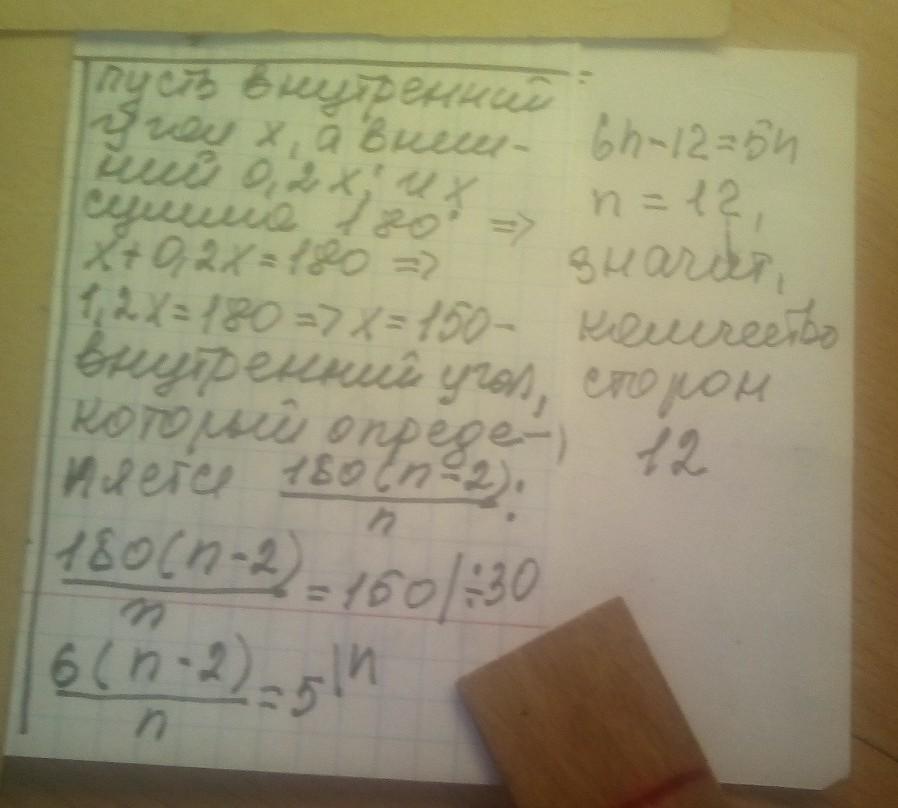 пусть внутренний
угол x, а внеш-
ний 0,2x; их
сумма 180° =>
x+0,2x=180 =>
1,2x=180 => x=150-
внутренний угол,
который опреде-
ляется 180(n-2)/n:
180(n-2)/n = 150 | ÷30
6(n-2)/n = 5 | n
6n-12=5n
n = 12,
значит,
количество
сторон
12